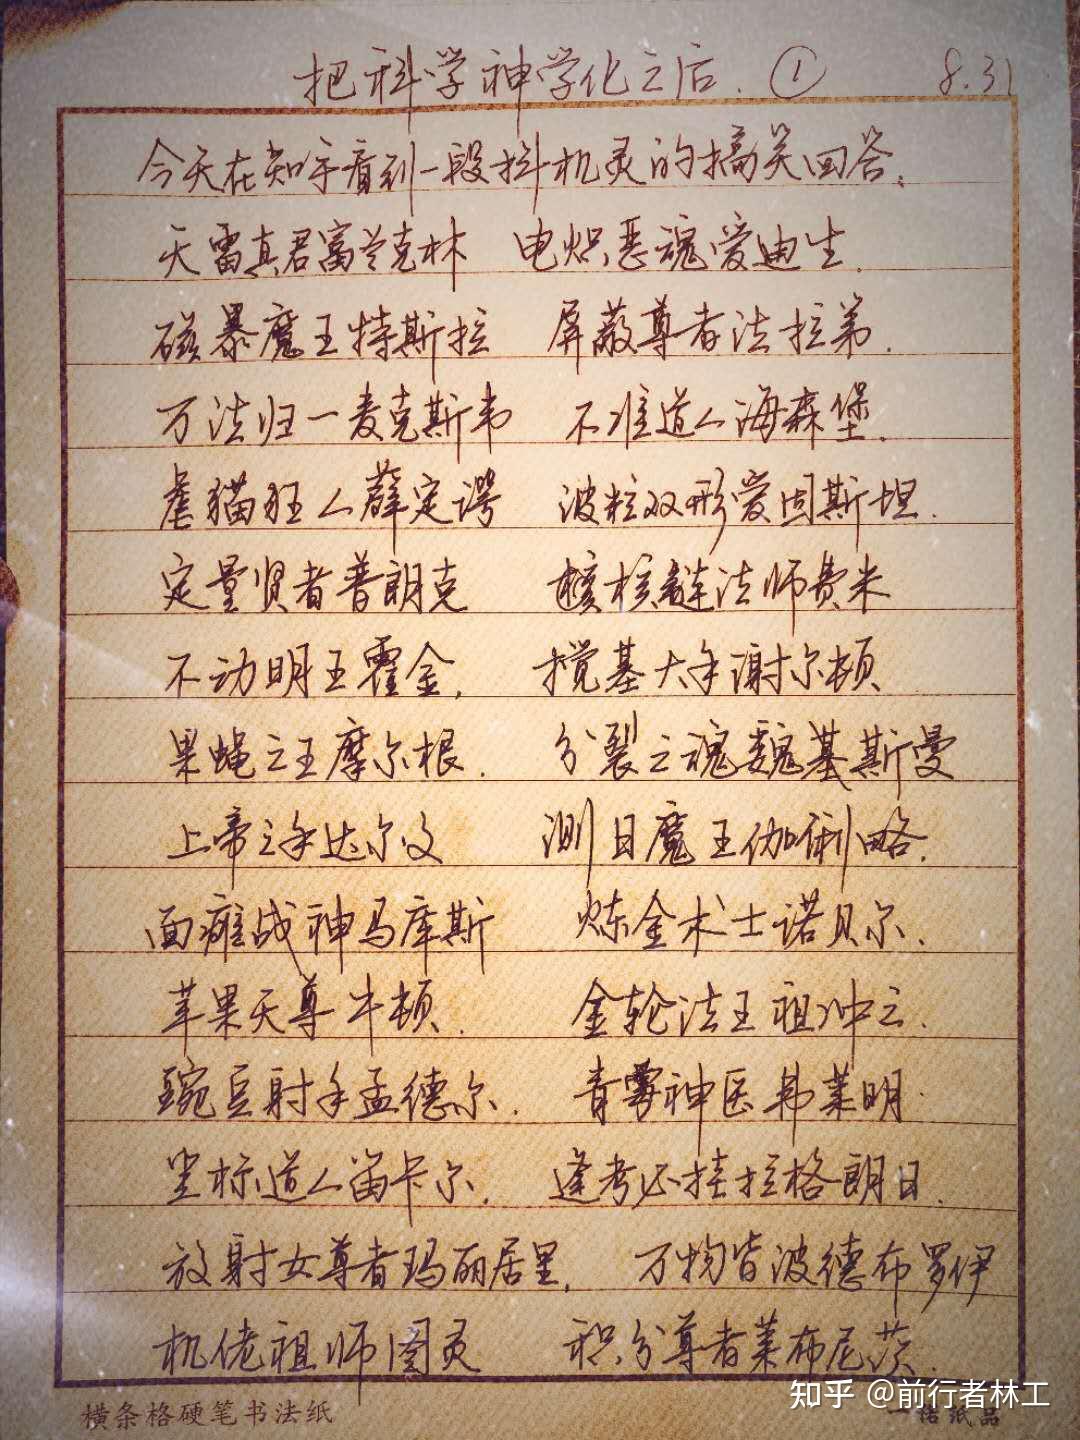 把科学神学化之后. ① 8.31
今天在知乎看到一段抖机灵的搞笑回答。
天雷真君富兰克林 电炽恶魂爱迪生.
磁暴魔王特斯拉 屏蔽尊者法拉第.
万法归一麦克斯韦 不准道人海森堡.
虐猫狂人薛定谔 波粒双形爱因斯坦.
定量贤者普朗克 核裂链法师费米
不动明王霍金. 搅基大手谢尔顿.
果蝇之王摩尔根. 分裂之魂魏基斯曼
上帝之手达尔文 测日魔王伽俐略.
面瘫战神马库斯 炼金术士诺贝尔.
苹果天尊牛顿. 金轮法王祖冲之.
豌豆射手孟德尔. 青霉神医弗莱明.
坐标道人笛卡尔. 逢考必挂拉格朗日.
放射女尊者玛丽居里. 万物皆波德布罗伊
机佬祖师图灵 积分尊者莱布尼茨.
知乎 @前行者林工
横条格硬笔书法纸 一禧纸品